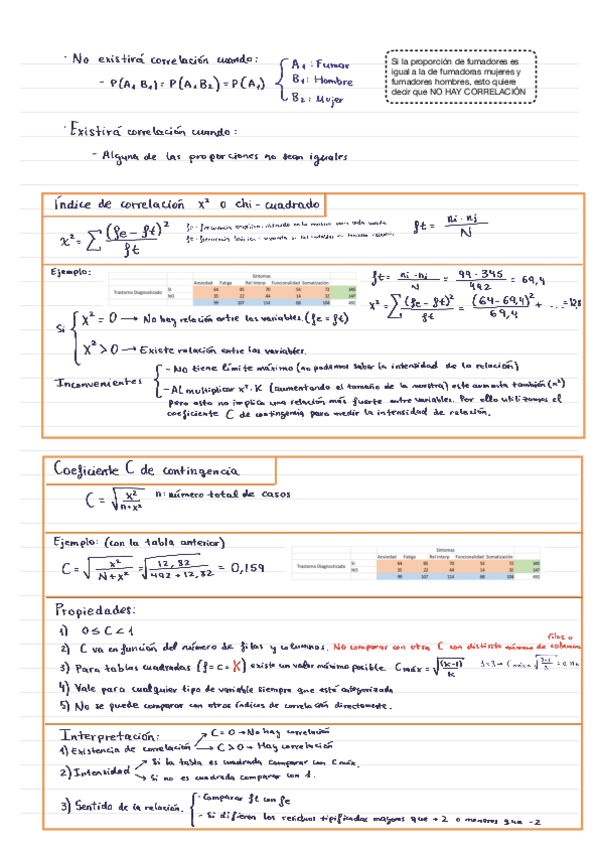 · No existirá correlación cuando:
- P(A₁ B₁) = P(A₁ B₂) = P(A₁)
A₁: Fumar
B₁: Hombre
B₂: Mujer
Si la proporción de fumadores es
igual a la de fumadoras mujeres y
fumadores hombres, esto quiere
decir que NO HAY CORRELACIÓN
· Existirá correlación cuando:
- Alguna de las proporciones no sean iguales
Índice de correlación x² o chi-cuadrado
x² = Σ (fe - ft)² / ft
ft = ni · nj / N
Ejemplo:
Síntomas
Ansiedad Fatiga Ref Interp Funcionalidad Somatización
Trastorno Diagnosticado
SI 64 85 70 54 72 345
NO 35 22 44 14 32 147
99 107 114 68 104 492
ft = ni · nj / N = 99 · 345 / 492 = 69,4
x² = Σ (fe - ft)² / ft = (64 - 69,4)² / 69,4 + ...
Si
x² = 0 → No hay relación entre las variables. (fe = ft)
x² > 0 → Existe relación entre las variables.
Inconvenientes
- No tiene límite máximo (no podemos saber la intensidad de la relación)
- Al multiplicar x² · K (aumentando el tamaño de la muestra) este aumenta también (x²)
pero esto no implica una relación más fuerte entre variables. Por ello utilizamos el
coeficiente C de contingencia para medir la intensidad de relación.
Coeficiente C de contingencia
C = √(x² / n + x²) n: número total de casos
Ejemplo: (con la tabla anterior)
C = √(x² / N + x²) = √(12,32 / 492 + 12,32) = 0,159
Síntomas
Ansiedad Fatiga Ref Interp Funcionalidad Somatización
Trastorno Diagnosticado
SI 64 85 70 54 72 345
NO 35 22 44 14 32 147
99 107 114 68 104 492
Propiedades:
1) 0 ≤ C < 1
2) C va en función del número de filas y columnas. No comparar con otra C con distinto número de filas o columnas
3) Para tablas cuadradas (f = c = K) existe un valor máximo posible. Cmáx = √((K-1) / K)
4) Vale para cualquier tipo de variable siempre que esté categorizada
5) No se puede comparar con otros índices de correlación directamente.
Interpretación:
1) Existencia de correlación
→ C = 0 → No hay correlación
→ C > 0 → Hay correlación
2) Intensidad
→ Si la tabla es cuadrada comparar con C máx.
→ Si no es cuadrada comparar con 1.
3) Sentido de la relación.
- Comparar ft con fe
- Si difieren los residuos tipificados mayores que +2 o menores que -2